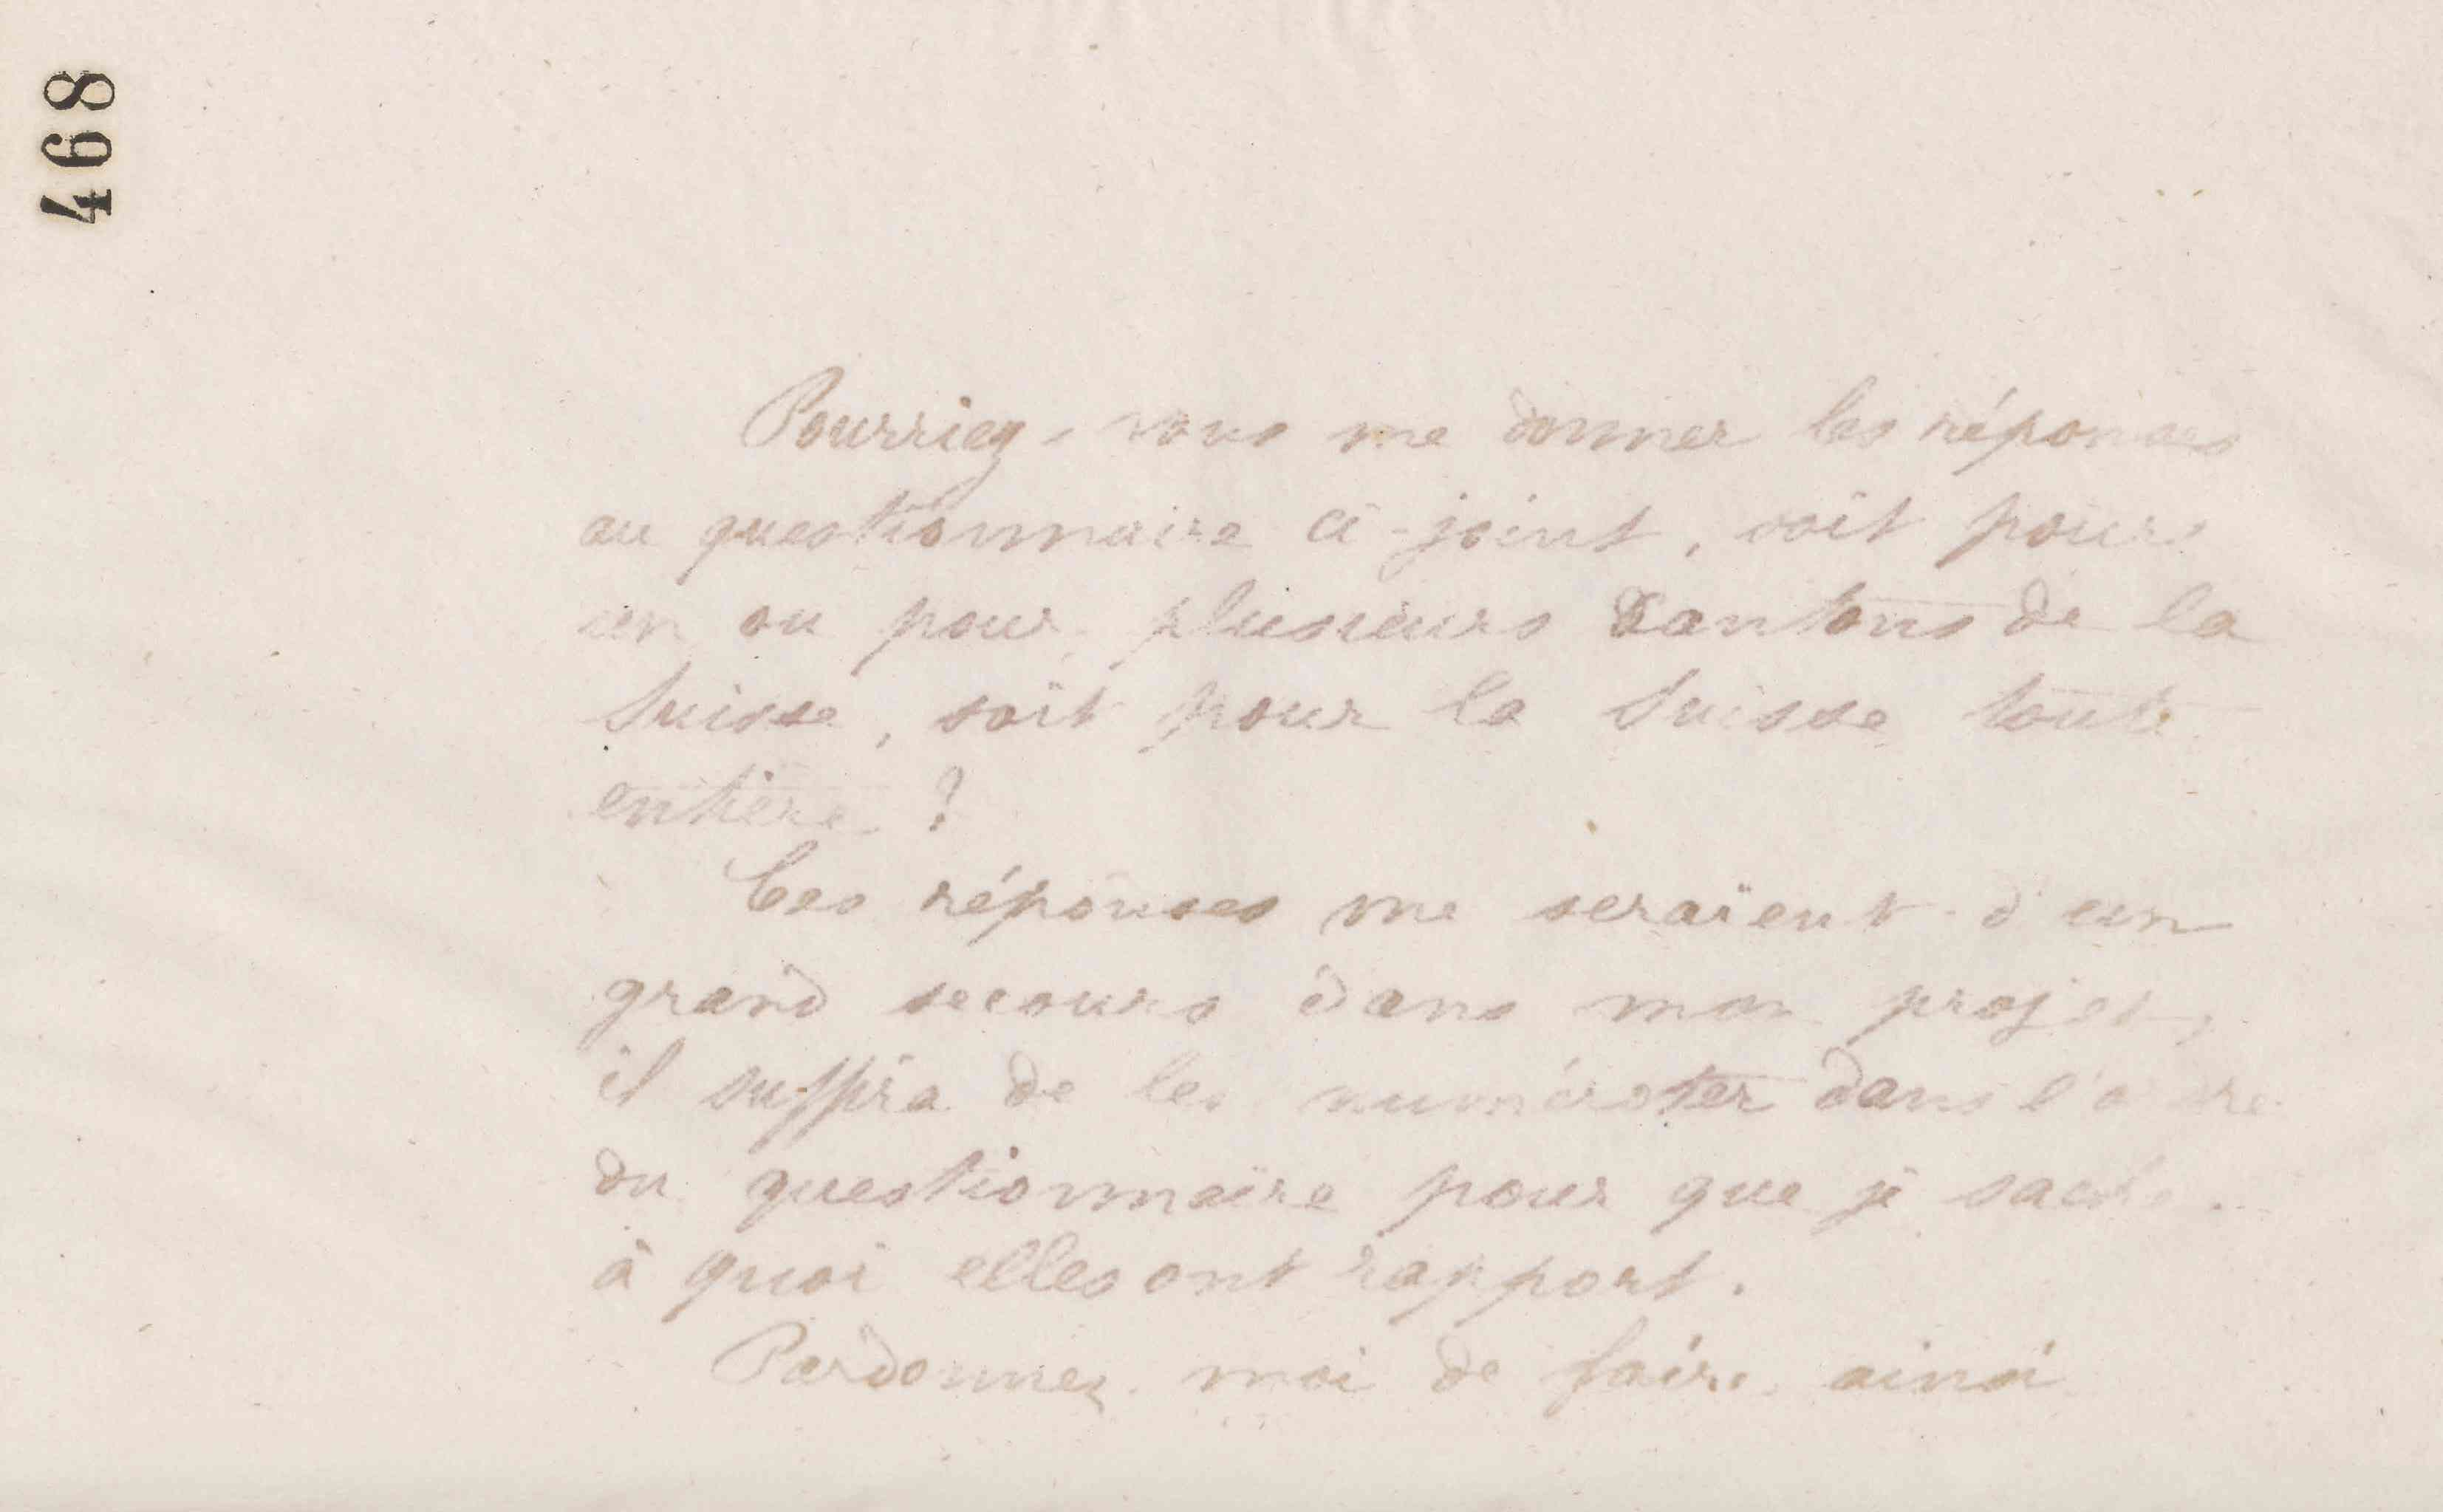 468
Pourriez-vous me donner les réponses
au questionnaire ci-joint, soit pour
un ou pour plusieurs Cantons de la
Suisse, soit pour la Suisse toute
entière ?
Ces réponses me seraient d'un
grand secours dans mon projet,
il suffira de les numéroter dans l'ordre
du questionnaire pour que je sache
à quoi elles ont rapport.
Pardonnez-moi de faire ainsi